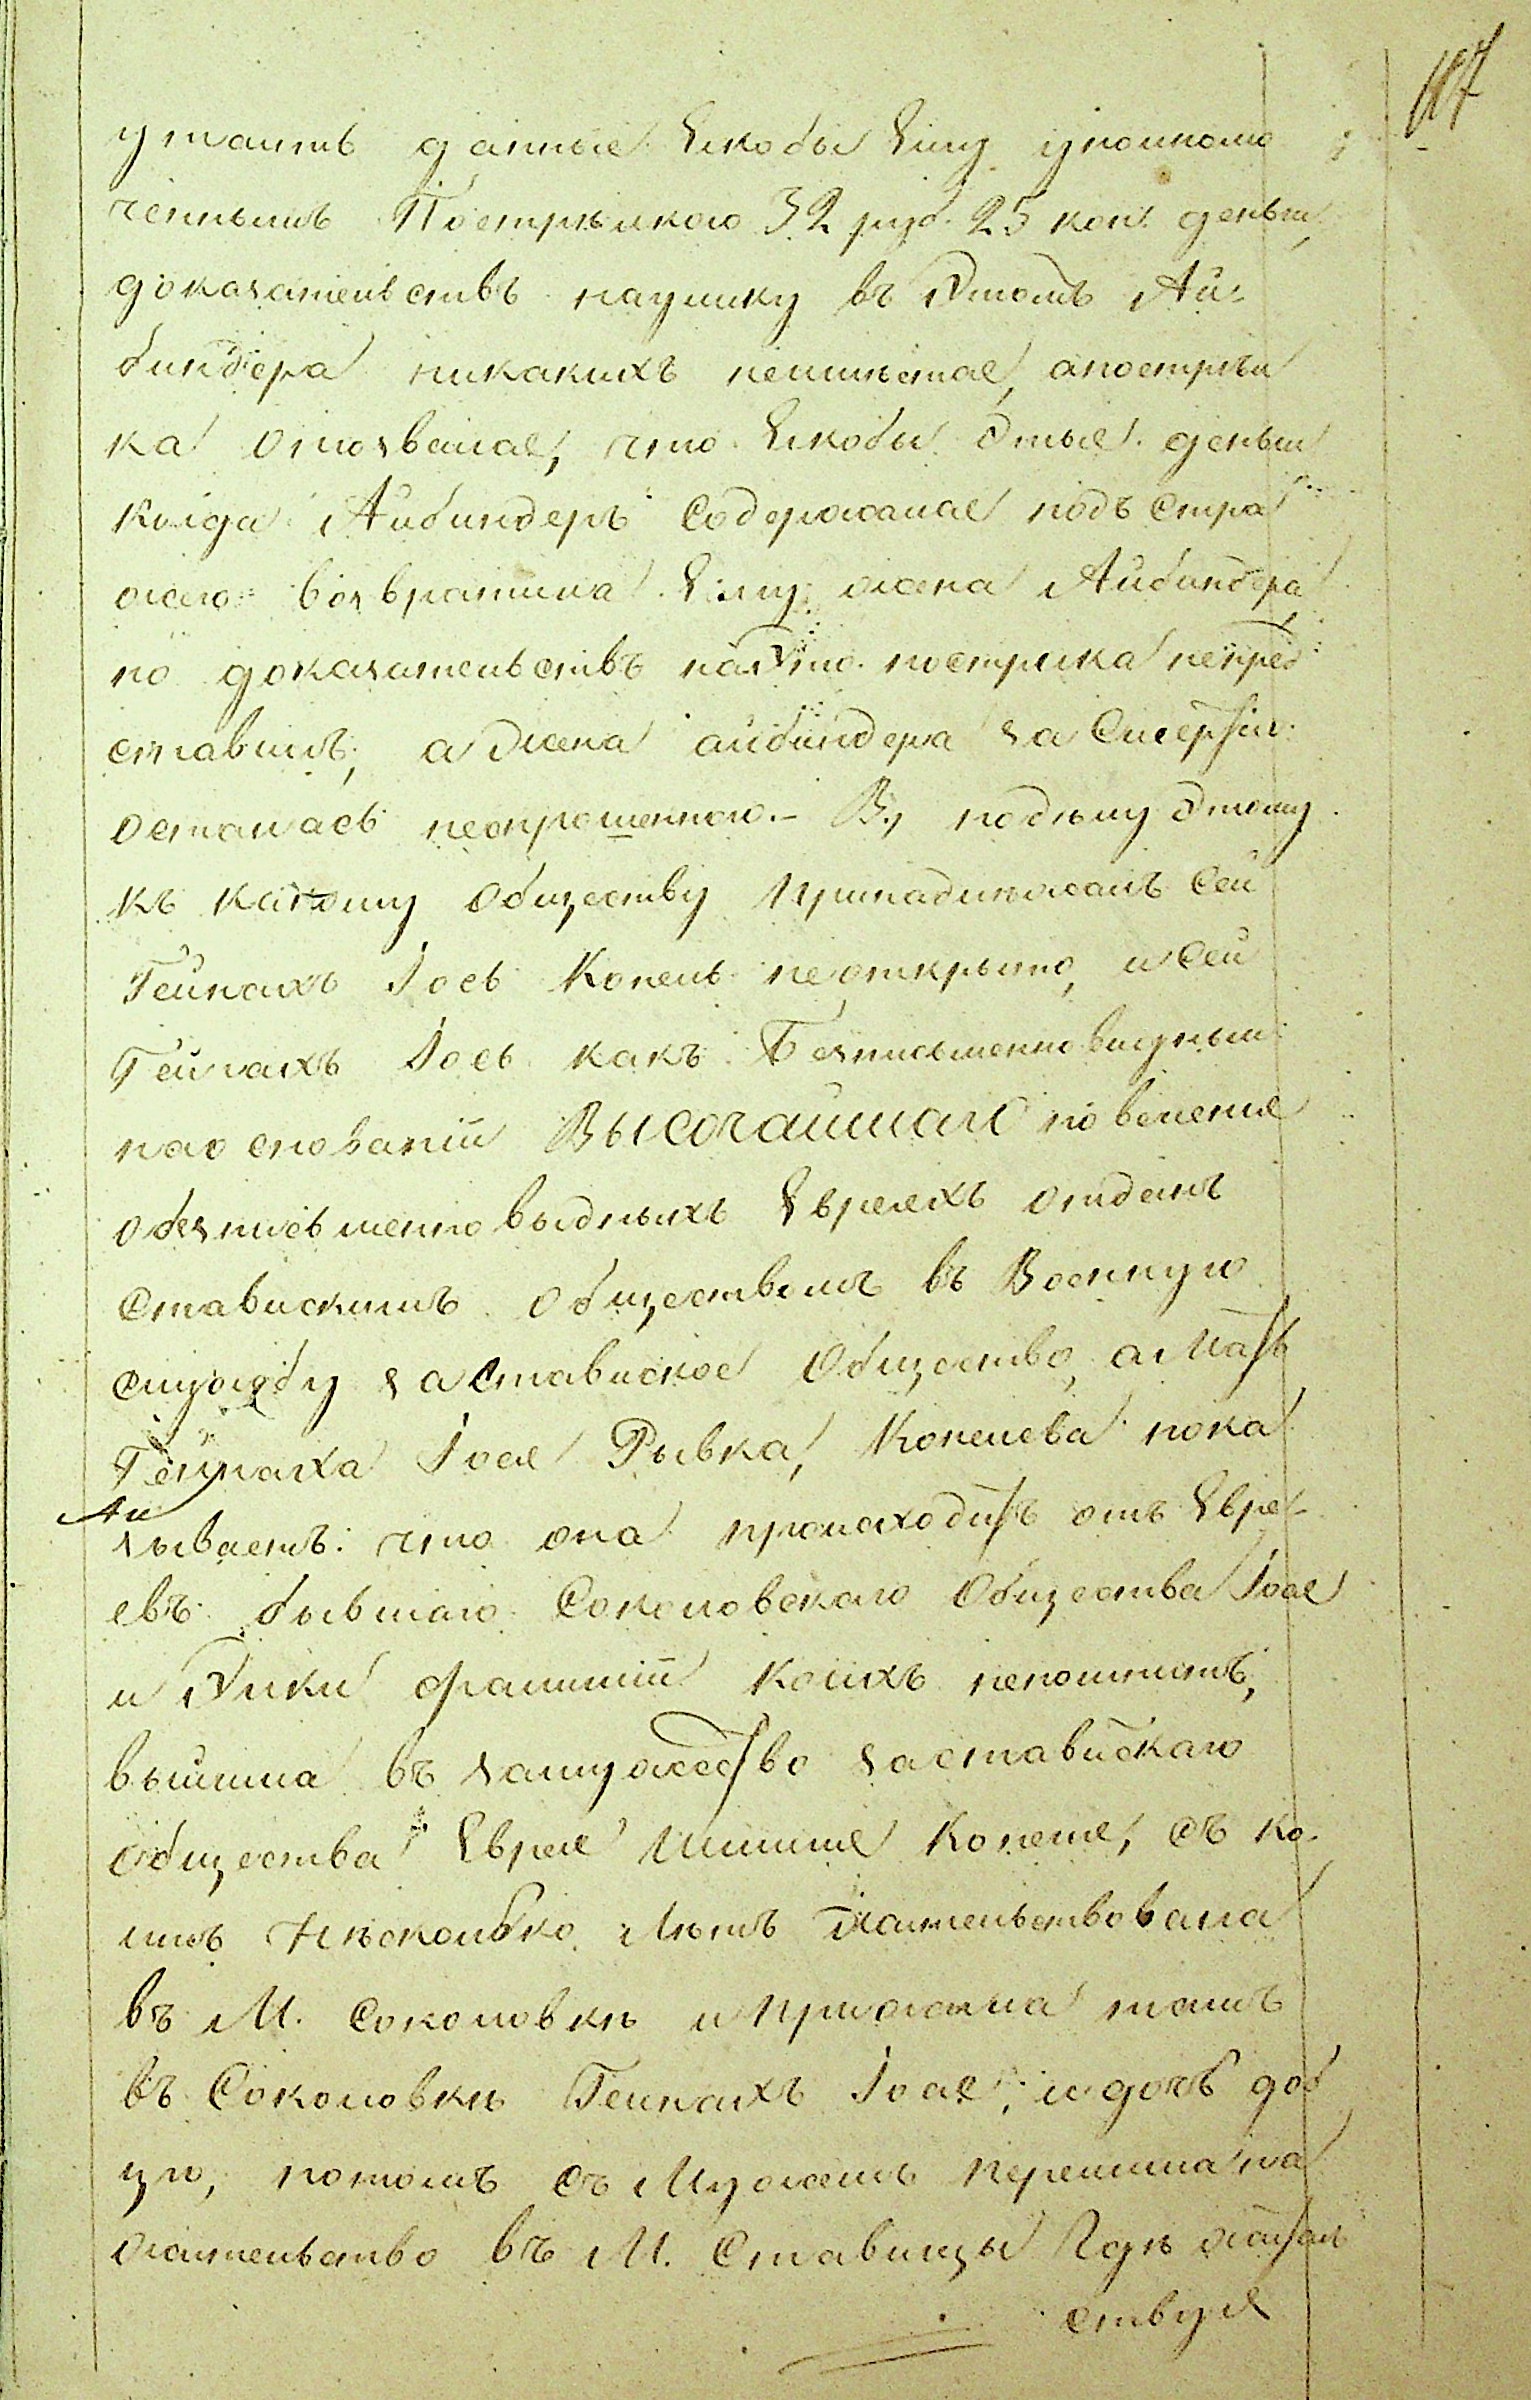 117
утаитъ данные Якобы Ему уполномо
ченнымъ Пострылкою 32 руб. 25 коп. деньги,
доказательствъ наулику въ Этомъ Ай-
биндера никакихъ неимѣется, а пострыл
ка отозвался, что Якобы Этые деньги
когда Айбиндеръ Содержался подъ Стра
жею возвратила Ему жена Айбиндера,
но доказательствъ на Это пострилка непред
ставилъ, а жена айбиндера за Смертію
осталась неопрошенною. – В., поделу Этому
къ какому Обществу Принадлежалъ Сей
Гейнахъ Іось Копель не открыто, и Сей
Гейнахъ Іось какъ Безписьменновидный
наоснованіи Высочайшаго повеленія
обезписьменновидныхъ Евреяхъ отданъ
Ставискимъ Обществомъ въ Военную
службу за Ставиское Общество, а Мать
Гейнаха Іося Рывка, Копелева пока
Ай
зываетъ: что она происходитъ отъ Евре-
евъ бывшаго Соколовскаго Общества Іося
и Эйки фамиліи коихъ непомнитъ,
вышла въ замужество заставискаго
общества Еврея Шишля Копеля, съ ко-
имъ Нѣсколько Лѣтъ жительствовала
въ М. Соколовкѣ и Прижила тамъ
въ Соколовкѣ Гейнахъ Іося, и дочь доб
цю, потомъ съ Мужемъ перешла на
жительство въ М. Ставищы Гдѣ житель
ствуя